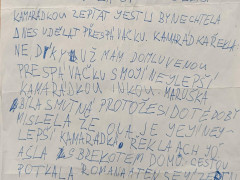 KAMARÁDKOU ZEPTAT JESTLI BY NECHTĚLA
DNES UDĚLAT PŘESPÁVAČKU. KAMARÁDKA ŘEKLA
NE DÍKY UŽ MÁM DOMLUVENOU
PŘESPÁVAČKU S MOJÍ NEJLEPŠÍ
KAMARÁDKOU MARUŠKA
BILA SMUTNÁ PROTOŽE SI DOTĚĎ
MISLELA ŽE ONA JE JEJÍ NEJ-
LEPŠÍ KAMARÁDKA. ŘEKLA ACH JO
A ŠLA S BREKOTEM DOMŮ. CESTOU
POTKALA